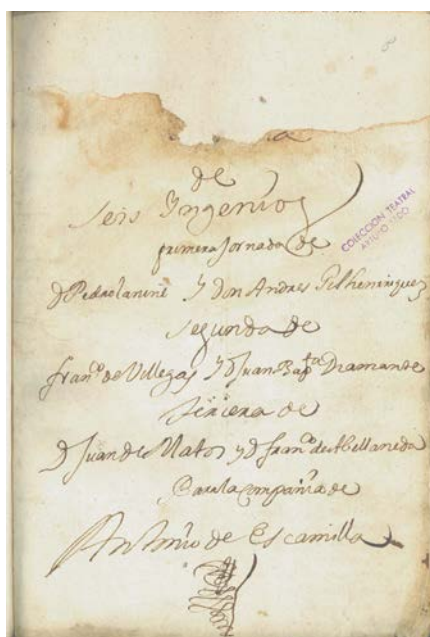 de
seis Yngenios
primera Jornada de
COLECCION TEATRAL
ARTURO SEDO
D Pedro lanine Y Don Andres Gil henrriquez
segunda de
franco de Villegas Y D Juan Bapta Diamante
tercera de
D Juan de Matos y D franco de Abellaneda
Para la compañia de
Antonio de Escamilla